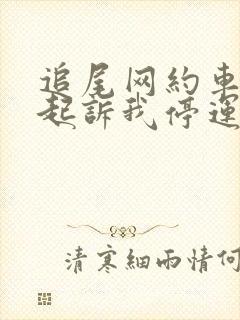 追尾网約車
起訴我停運
清寒細雨情何